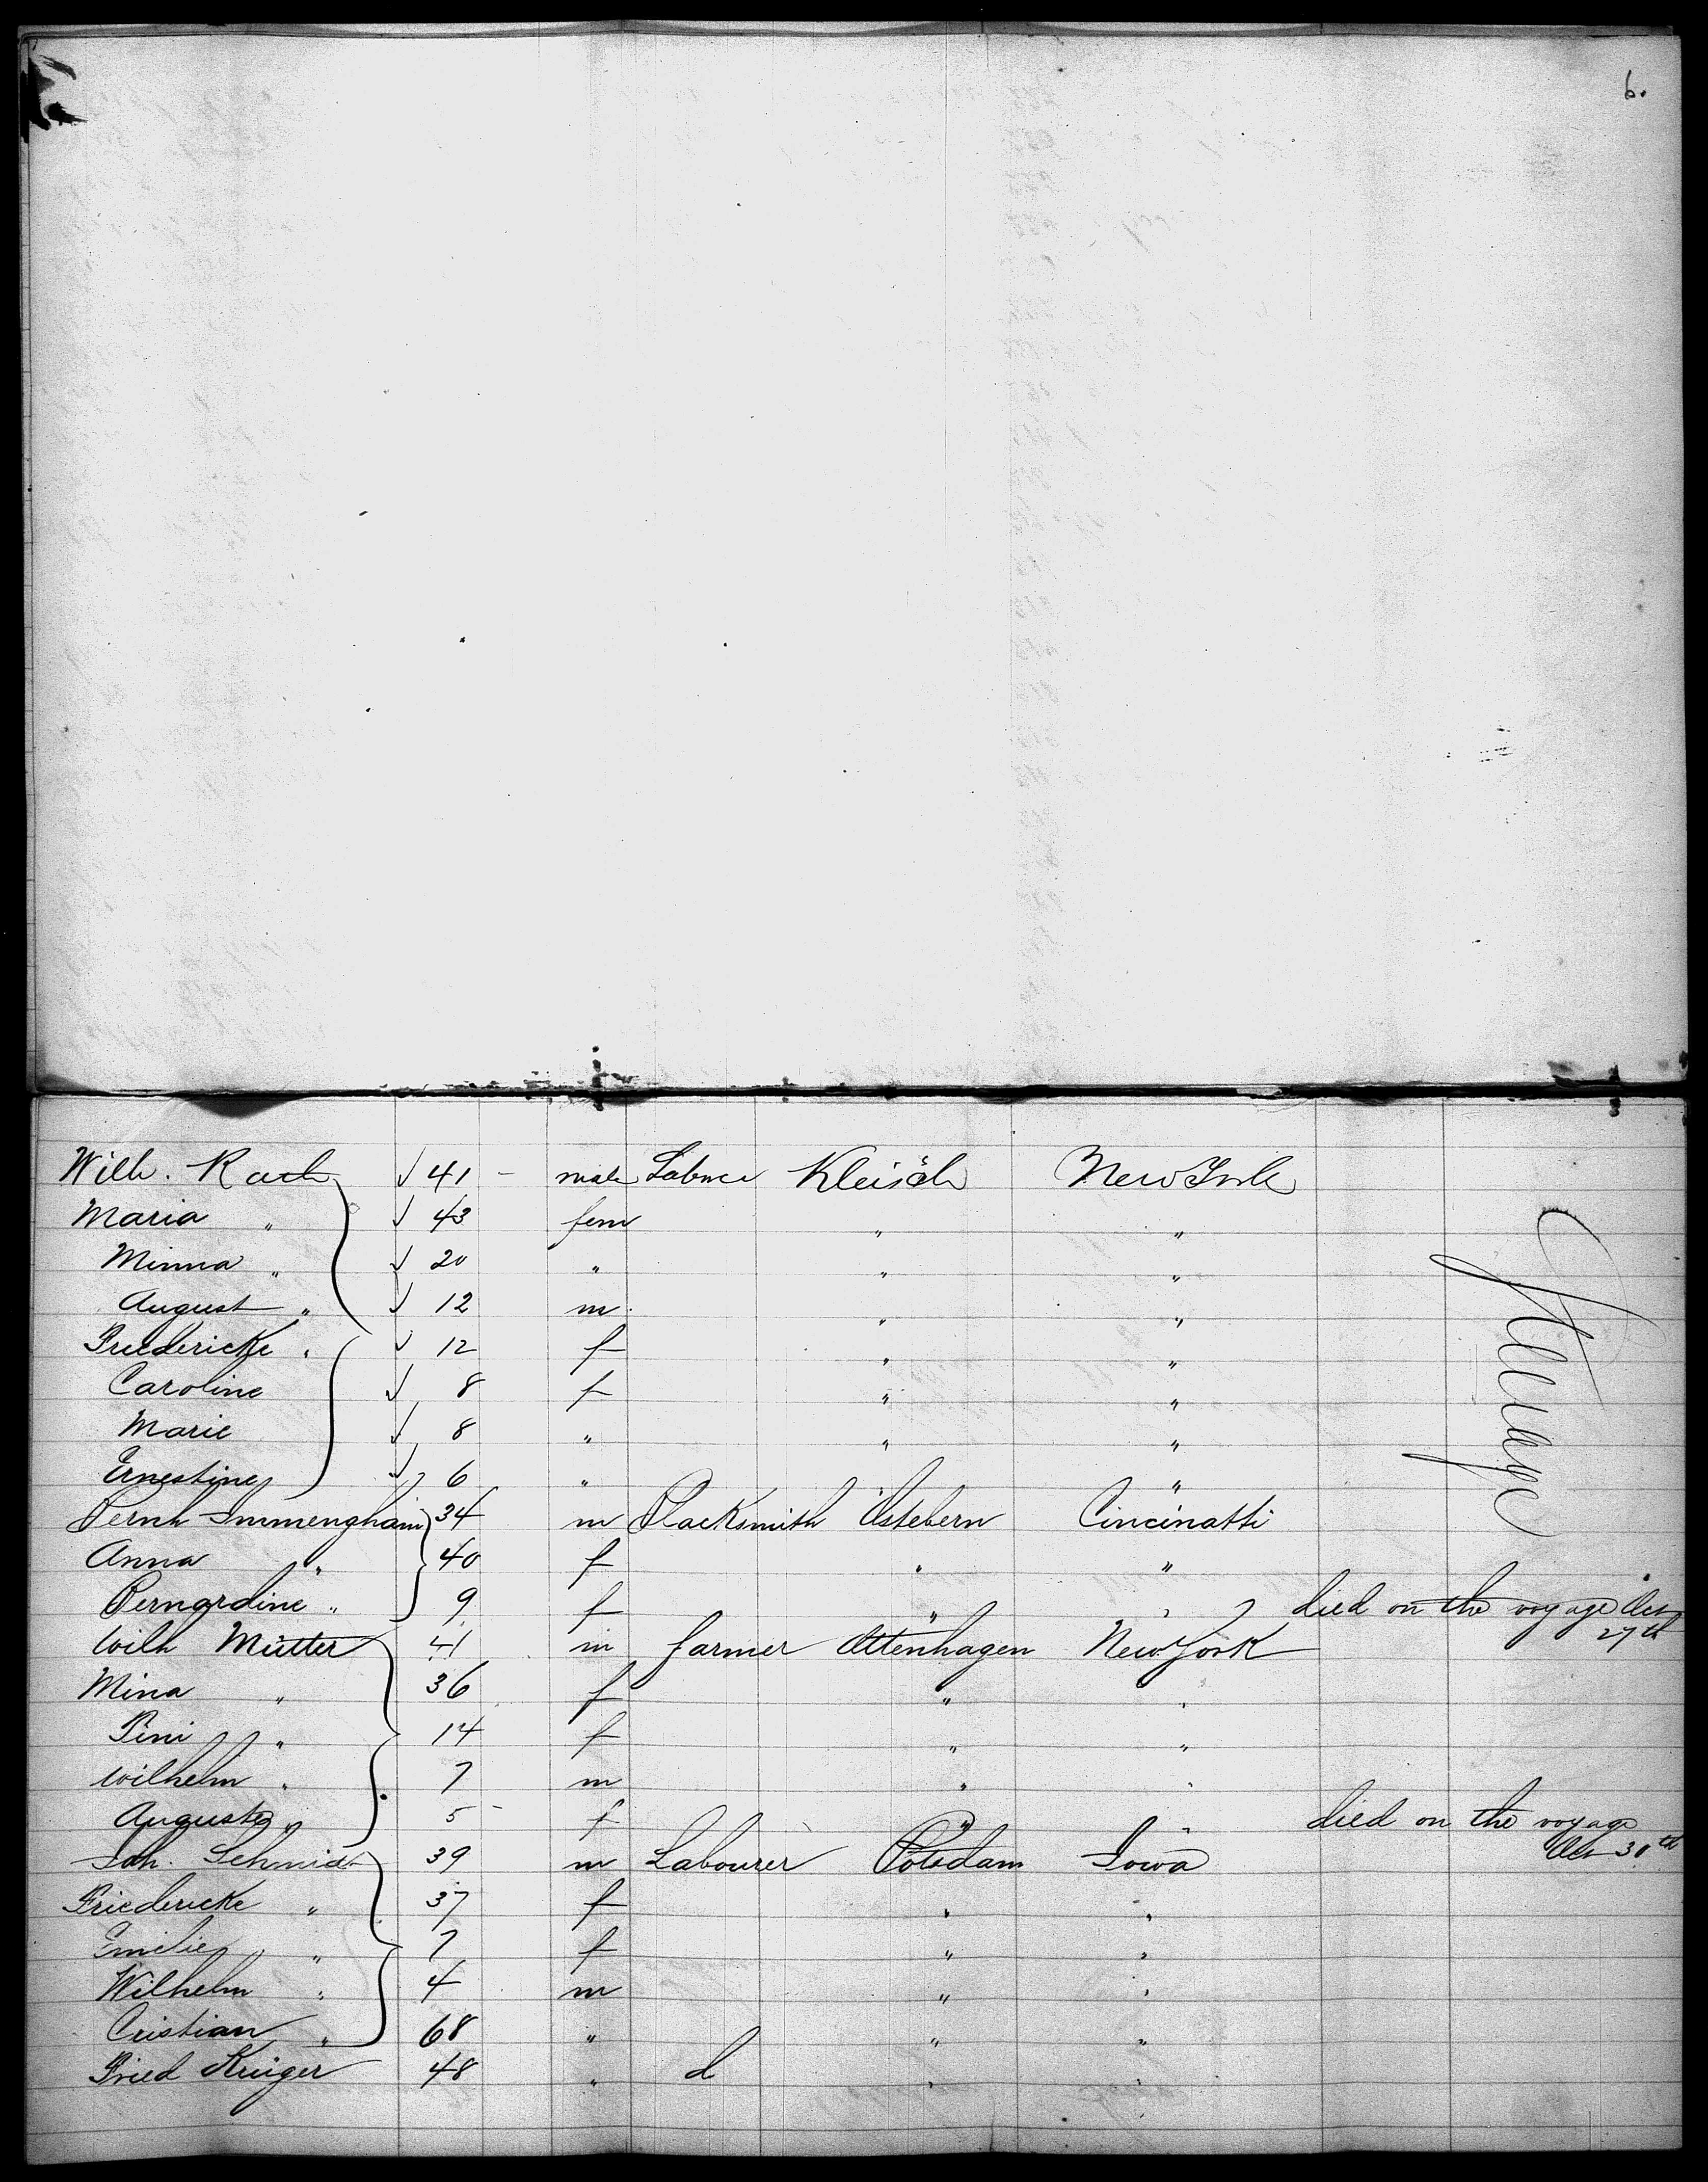 6.
Wilh. Rach √ 41 - male Kleisch New York
Maria " √ 43 fem " "
Minna " √ 20 " " "
August " √ 12 m " "
Friedericke " √ 12 f " "
Caroline √ 8 f " "
Marie √ 8 " " "
Ernestine √ 6 " " "
Bernh Immengham 34 m Blacksmith Ostebern Cincinatti
Anna " 40 f " "
Berngrdine " 9 f " " died on the voyage Oct 27th
Wilh Mütter 41 m farmer Ottenhagen New York
Mina " 36 f " "
Pini " 14 f " "
Wilhelm " 7 m " "
Auguste " 5 - f " " died on the voyage
Joh. Schmidt 39 m Labourer Potsdam Iowa Oct 30th
Friedericke " 37 f " "
Emilie " 7 f " "
Wilhelm " 4 m " "
Cristian " 68 " " "
Fried Krüger 48 " d " "